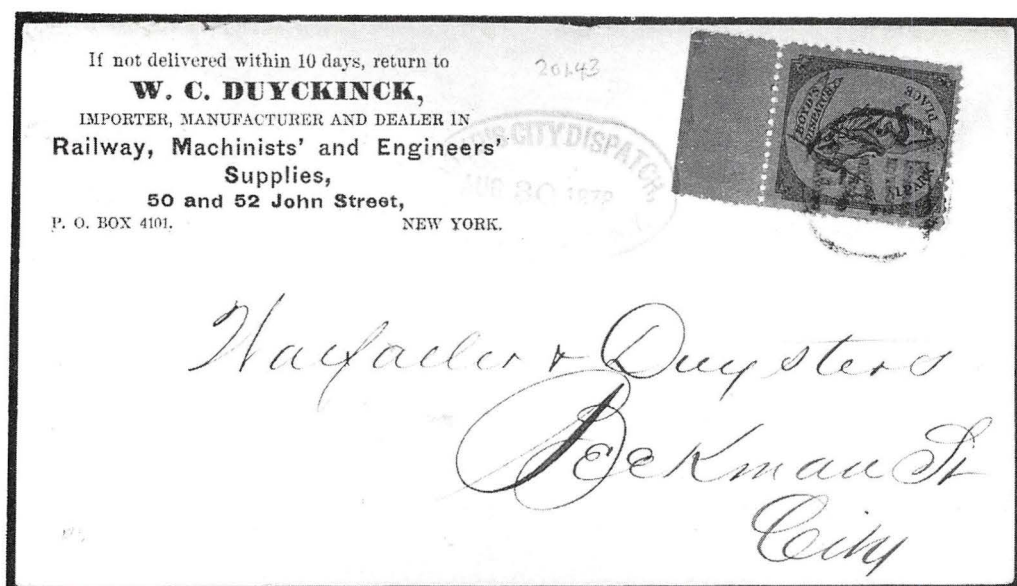 If not delivered within 10 days, return to
W. C. DUYCKINCK,
IMPORTER, MANUFACTURER AND DEALER IN
Railway, Machinists' and Engineers'
Supplies,
50 and 52 John Street,
P. O. BOX 4101. NEW YORK.
20143
CITY DISPATCH
AUG 30 1878
BOYD'S
DISPATCH
1 PARK
PLACE
& Duysters
Beekman St
City